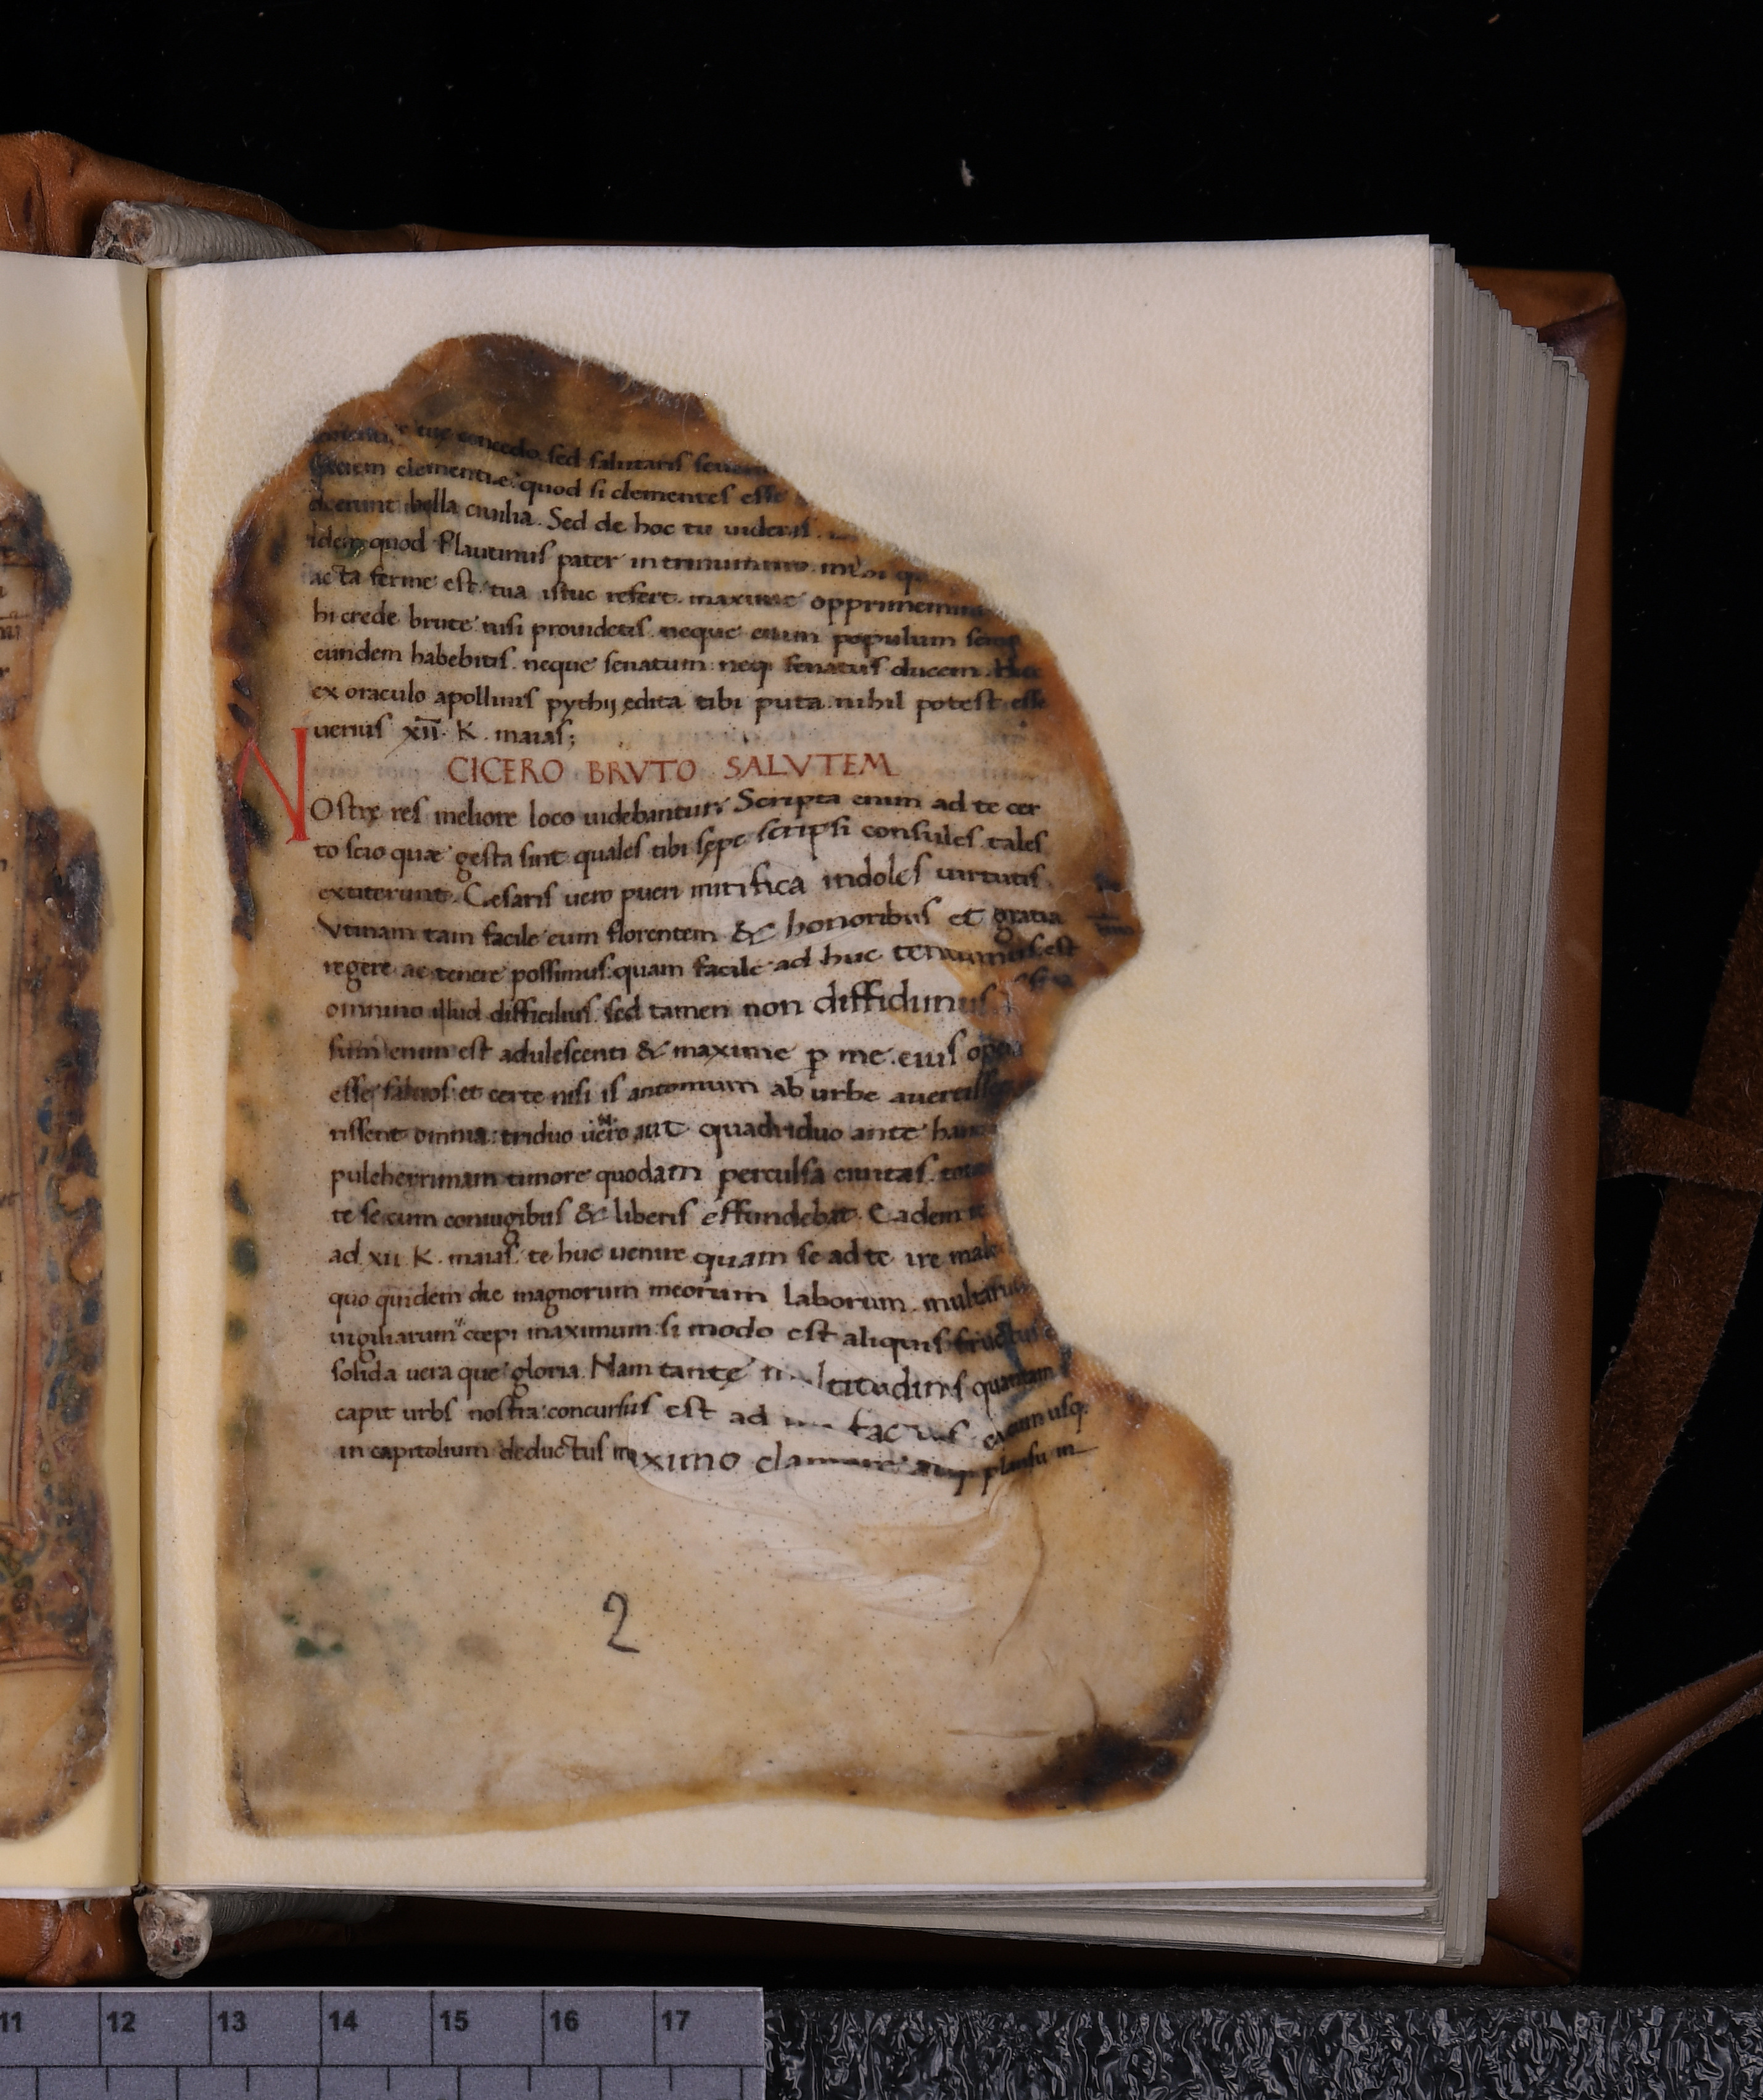 tuę concedo sed salutaris seueri
speciem clementiae quod si clementes esse
deerunt bella ciuilia. Sed de hoc tu uideris.
Idem quod Plautinus pater in trinummo. mihi qu
acta ferme est. tua istuc refert. maxime opprimemini
hi crede brute nisi prouidetis. neque enim populum semp
eundem habebitis. neque senatum neq senatus ducem. Hęc
ex oraculo apollinis pythij edita tibi puta. nihil potest esse
uerius xii. K. maias;
CICERO BRVTO SALVTEM
NOstrę res meliore loco uidebantur. Scripta enim ad te cer
to scio quæ gesta sint quales tibi sępe scripsi consules. tales
extiterunt. Cęsaris uero pueri mirifica indoles uirtutis.
Vtinam tam facile eum florentem & honoribus et gratia
regere ac tenere possimus: quam facile ad huc tenuimus. est
omnino illud difficilius. sed tamen non diffidimus
sum enim est adulescenti & maxime p me. eius ope
esse saluos. et certe nisi is antonium ab urbe auertisse
rissent omnia: triduo uero aut quadriduo ante hanc
pulcherrimam timore quodam perculsa ciuitas. tota
te se cum coniugibus & liberis effundebat. Eadem
ad xii K. maias. te huc uenire quam se ad te ire male
quo quidem die magnorum meorum laborum. multarum
uigiliarum cœpi maximum. si modo est aliquis fructus
solida uera que gloria. Nam tantę multitudinis quantam
capit urbs nostra: concursus est ad me factus usq
in capitolium deductus maximo clamore atq plausu in
2
11 12 13 14 15 16 17